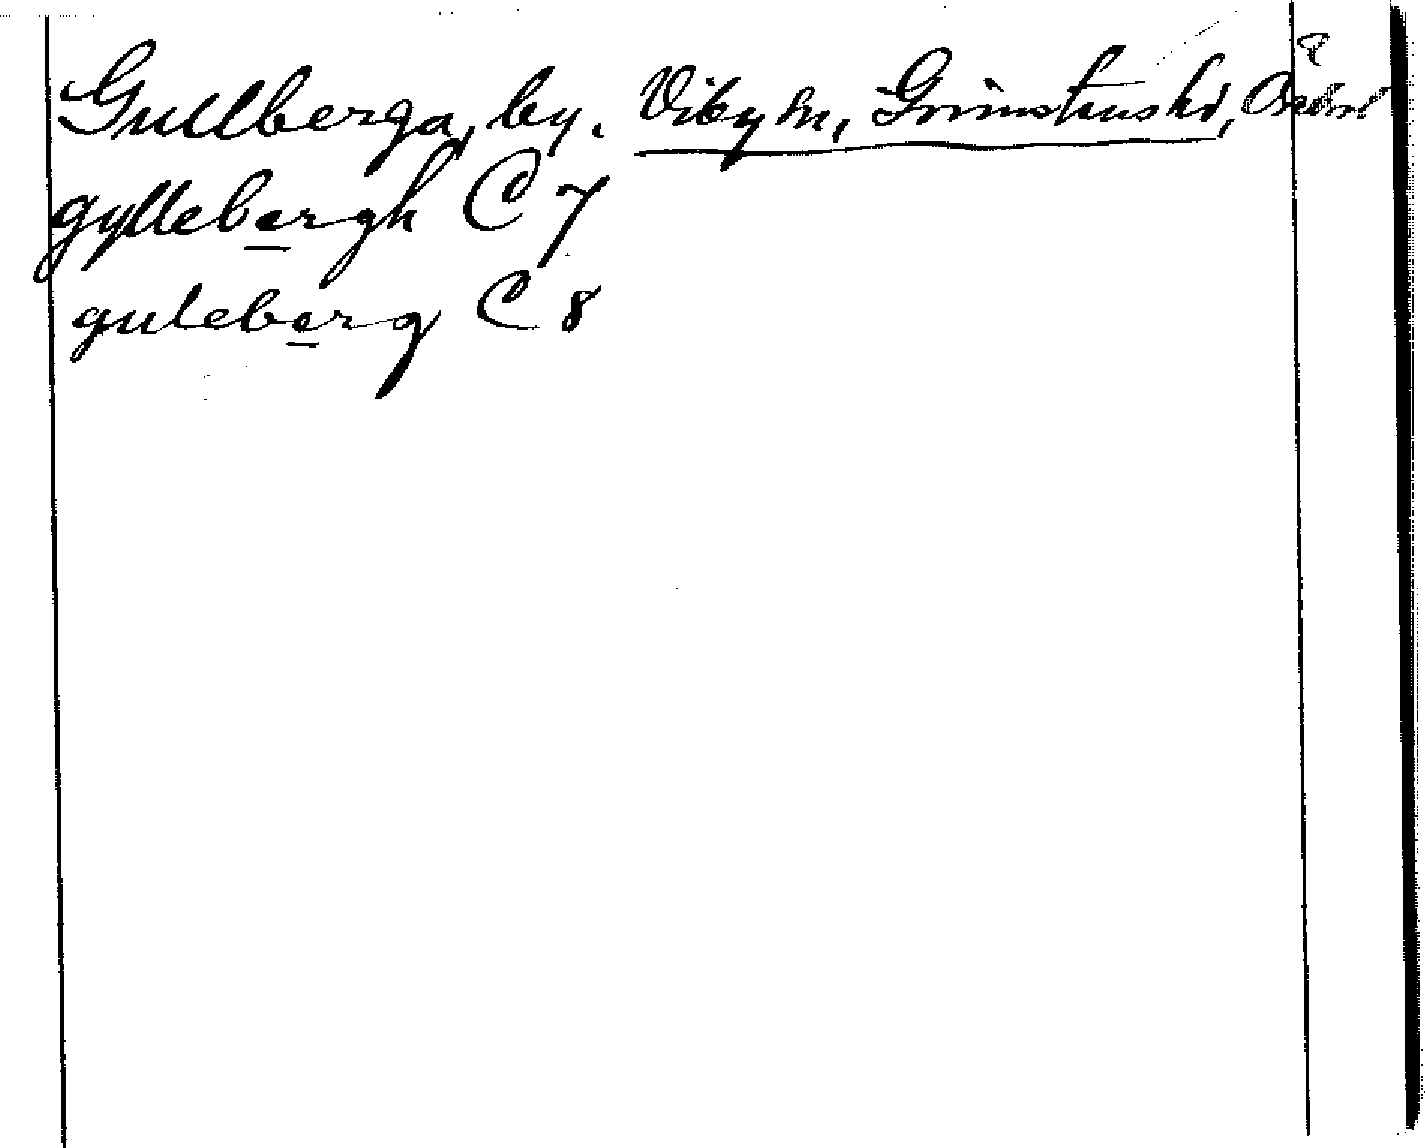 Gullberga, by. Viby sn, Grimstens hd,
gyllebergh C 7
guleberg C 8